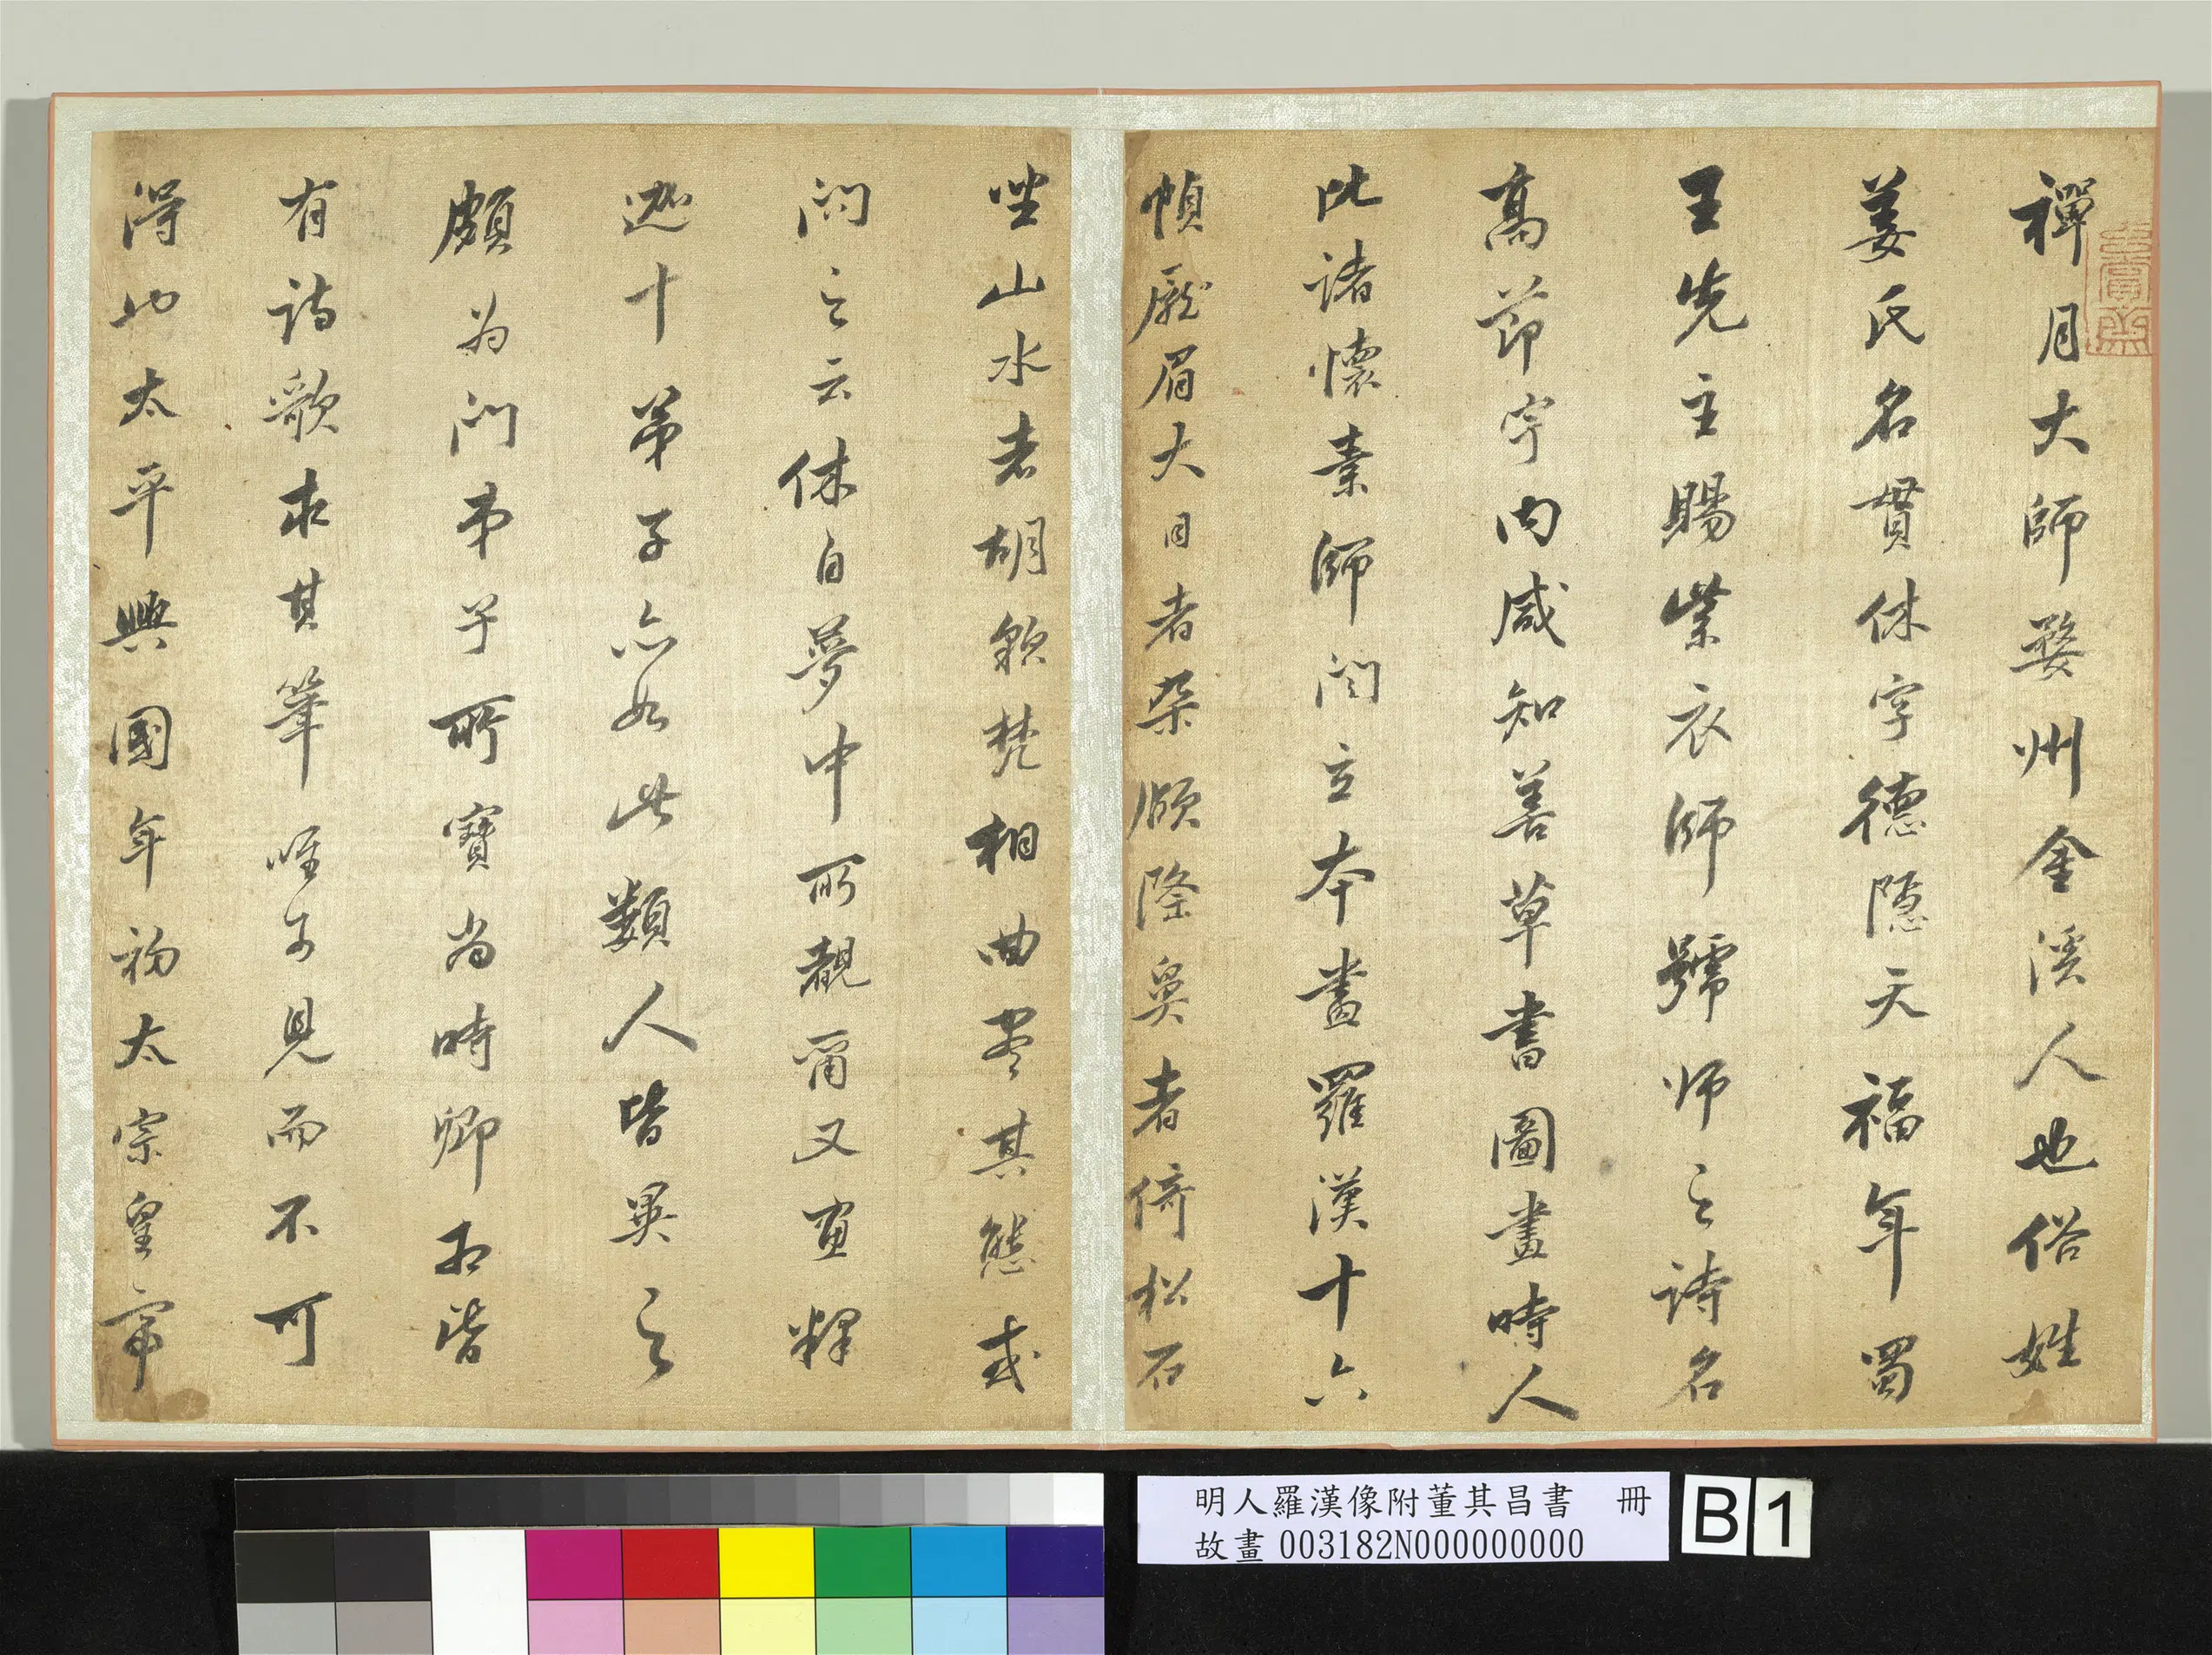 禪月大師婺州金溪人也俗姓
姜氏名貫休字德隱天福年蜀
王先主賜紫衣師號师之诗名
高節宇内咸知善草書圖畫時人
比諸懷素師閻立本畫羅漢十六
幀厖眉大目者朶頤隆鼻者倚松石
坐山水者胡貌梵相曲尽其態或
问之云休自夢中所覩爾又画釋
迦十弟子亦如此類人皆異之
頗为门弟子所寶当時卿相皆
有诗歌求其筆唯可見而不可
得也太平興國年初太宗皇帝
明人羅漢像附董其昌書 冊
故畫 003182N000000000
B 1